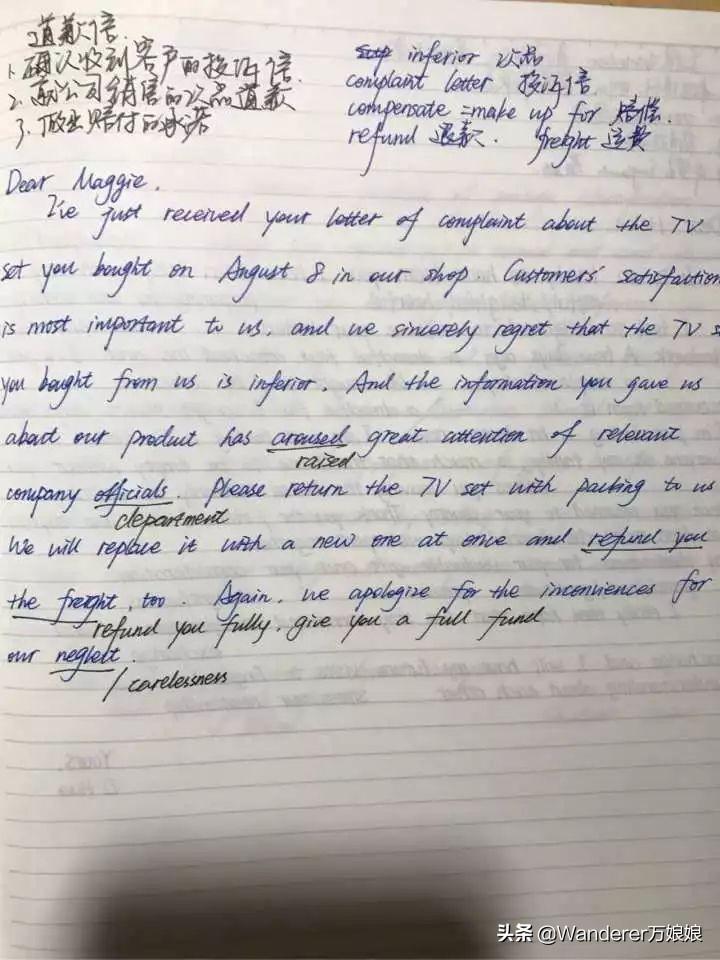 道歉信.
1. 确认收到客户的投诉信.
2. 就公司销售的次品道歉
3. 做出赔付的承诺
inferior 次品
complaint letter 投诉信
compensate =make up for 赔偿.
refund 退款. freight 运费
Dear Maggie,
I've just received your letter of complaint about the TV
set you bought on August 8 in our shop. Customers' satisfaction
is most important to us, and we sincerely regret that the TV s
you bought from us is inferior. And the information you gave us
about our product has aroused great attention of relevant
raised
company officials. Please return the TV set with packing to us
department
We will replace it with a new one at once and refund you
the freight, too. Again, we apologize for the inconviences for
refund you fully, give you a full fund
our neglect.
/ carelessness
Yours,
头条 @Wanderer万娘娘